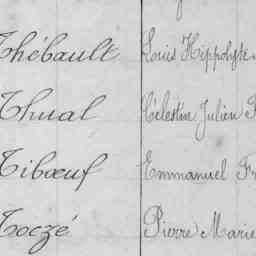 Thébault Louis Hippolyte
Thual Célestin Julien
Tibœuf Emmanuel
Toczé Pierre Marie